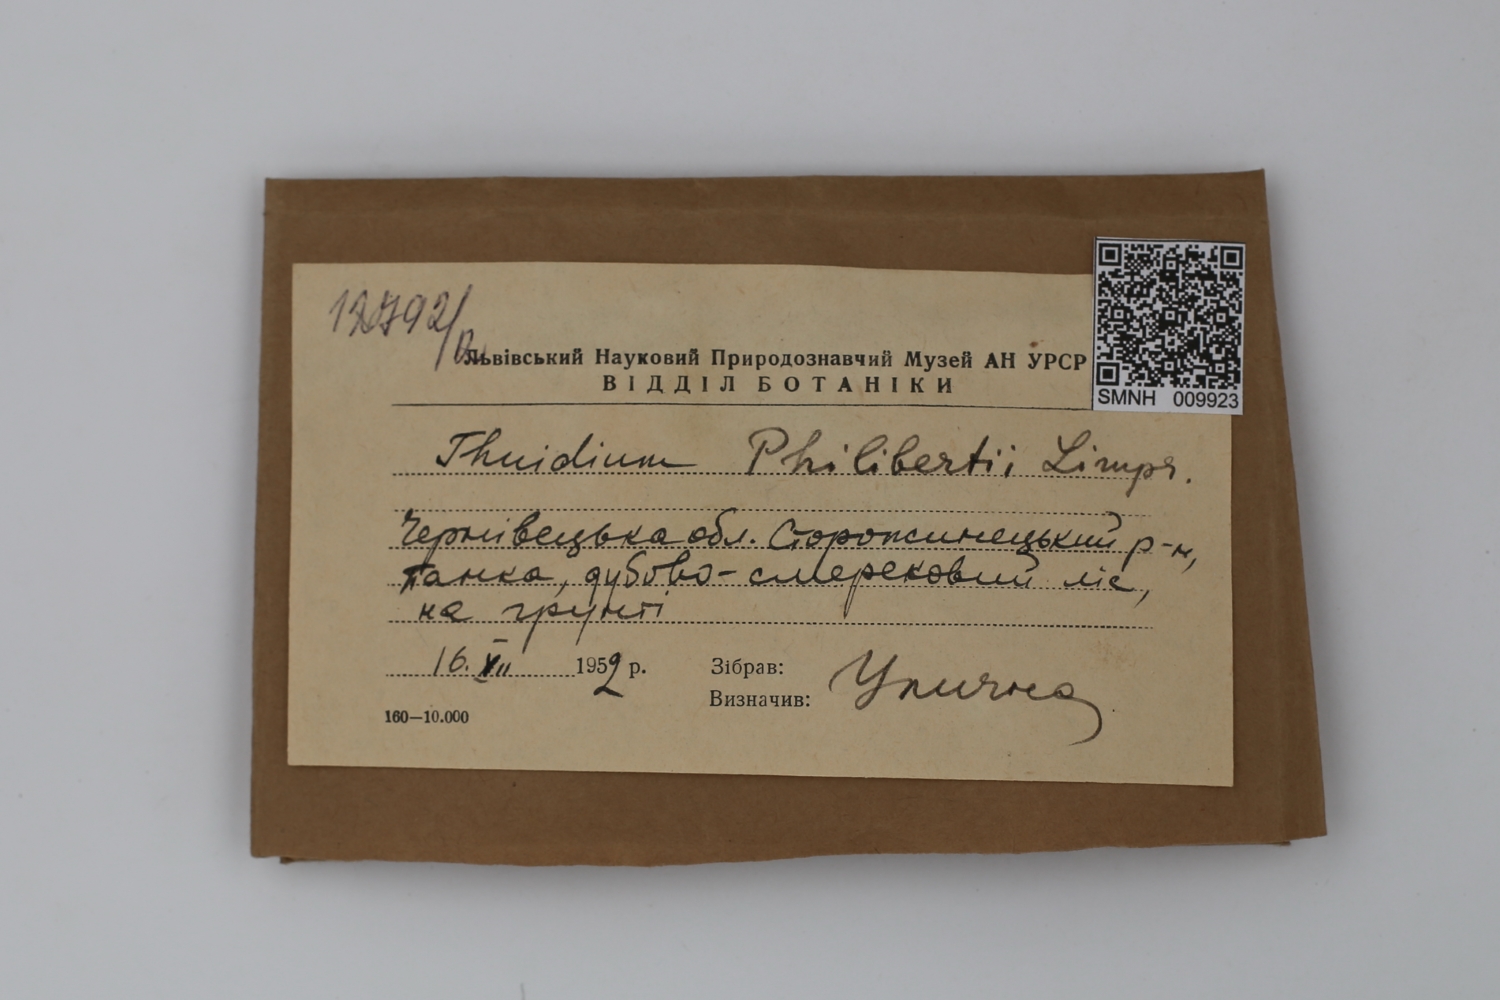 12792/
Львівський Науковий Природознавчий Музей АН УРСР
ВІДДІЛ БОТАНІКИ
SMNH 009923
Thuidium Philibertii Limpr.
Чернівецька обл. Сторожинецький р-н,
Панка, дубово-смерековий ліс,
на грунті
16. VII 1952 р. Зібрав: Улична
Визначив:
160—10.000